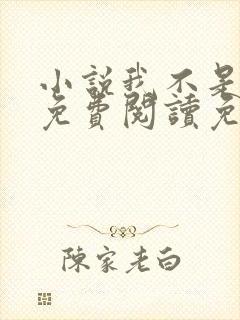 小說我不是
免費閱讀免
陳家老白